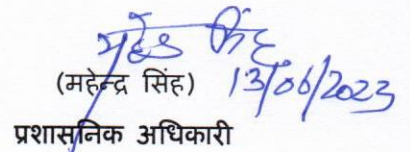 महेन्द्र सिंह
(महेन्द्र सिंह) 13/06/2023
प्रशासनिक अधिकारी